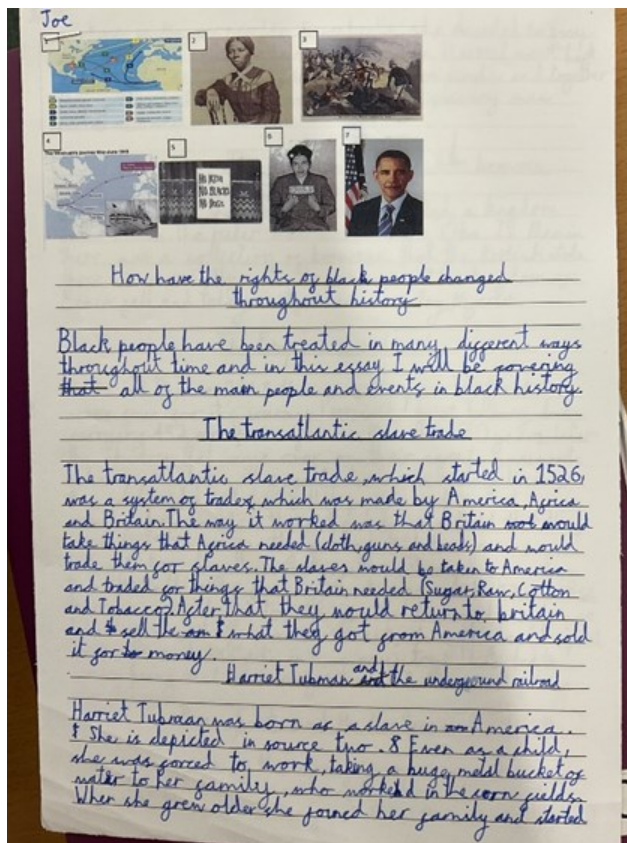 Joe
1
2
3
4
5
6
7
The Windrush's Journey May-June 1948
NO IRISH
NO BLACKS
NO DOGS
How have the rights of black people changed
throughout history
Black people have been treated in many different ways
throughout time and in this essay I will be covering
that all of the main people and events in black history.
The transatlantic slave trade
The transatlantic slave trade, which started in 1526,
was a system of trades, which was made by America, Africa
and Britain. The way it worked was that Britain would
take things that Africa needed (cloth, guns and beads) and would
trade them for slaves. The slaves would be taken to America
and traded for things that Britain needed (Sugar, Raw, Cotton
and Tobacco) After that they would return to britain
and sell the what they got from America and sold
it for money.
Harriet Tubman and the underground railroad
Harriet Tubman was born as a slave in America.
She is depicted in source two. Even as a child,
she was forced to work, taking a huge metal bucket of
water to her family, who worked in the corn fields.
When she grew older she joined her family and started